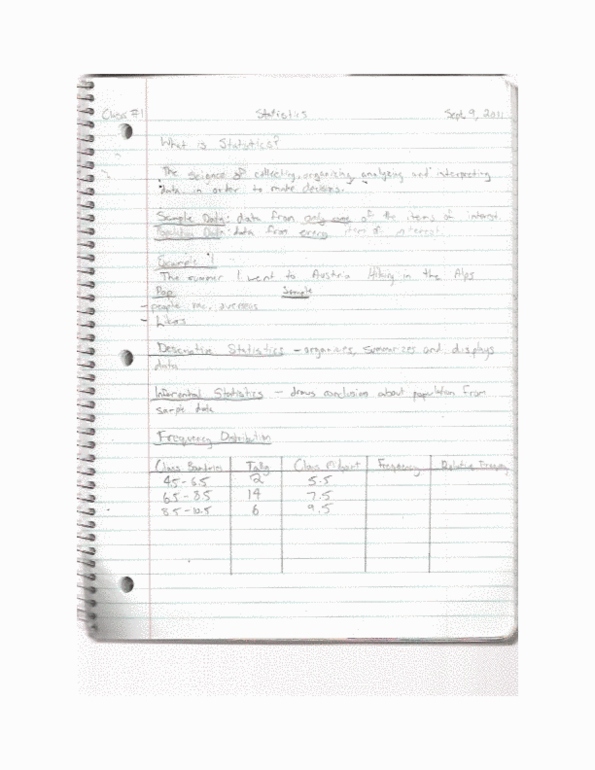 Class #1 Statistics Sept 9, 2011
What is Statistics?
The science of collecting, organizing, analyzing and interpreting
data in order to make decisions.
Sample Data: data from only some of the items of interest.
Population Data: data from every item of interest.
Example 1
The summer I went to Austria Hiking in the Alps
Pop Sample
- people overseas
- hikers
Descriptive Statistics - organizes, summarizes and displays
data
Inferential Statistics - draws conclusion about population from
sample data
Frequency Distribution
Class Tally Class Midpoint Frequency Relative Frequency
4.5 - 6.5 2 5.5
6.5 - 8.5 14 7.5
8.5 - 10.5 6 9.5